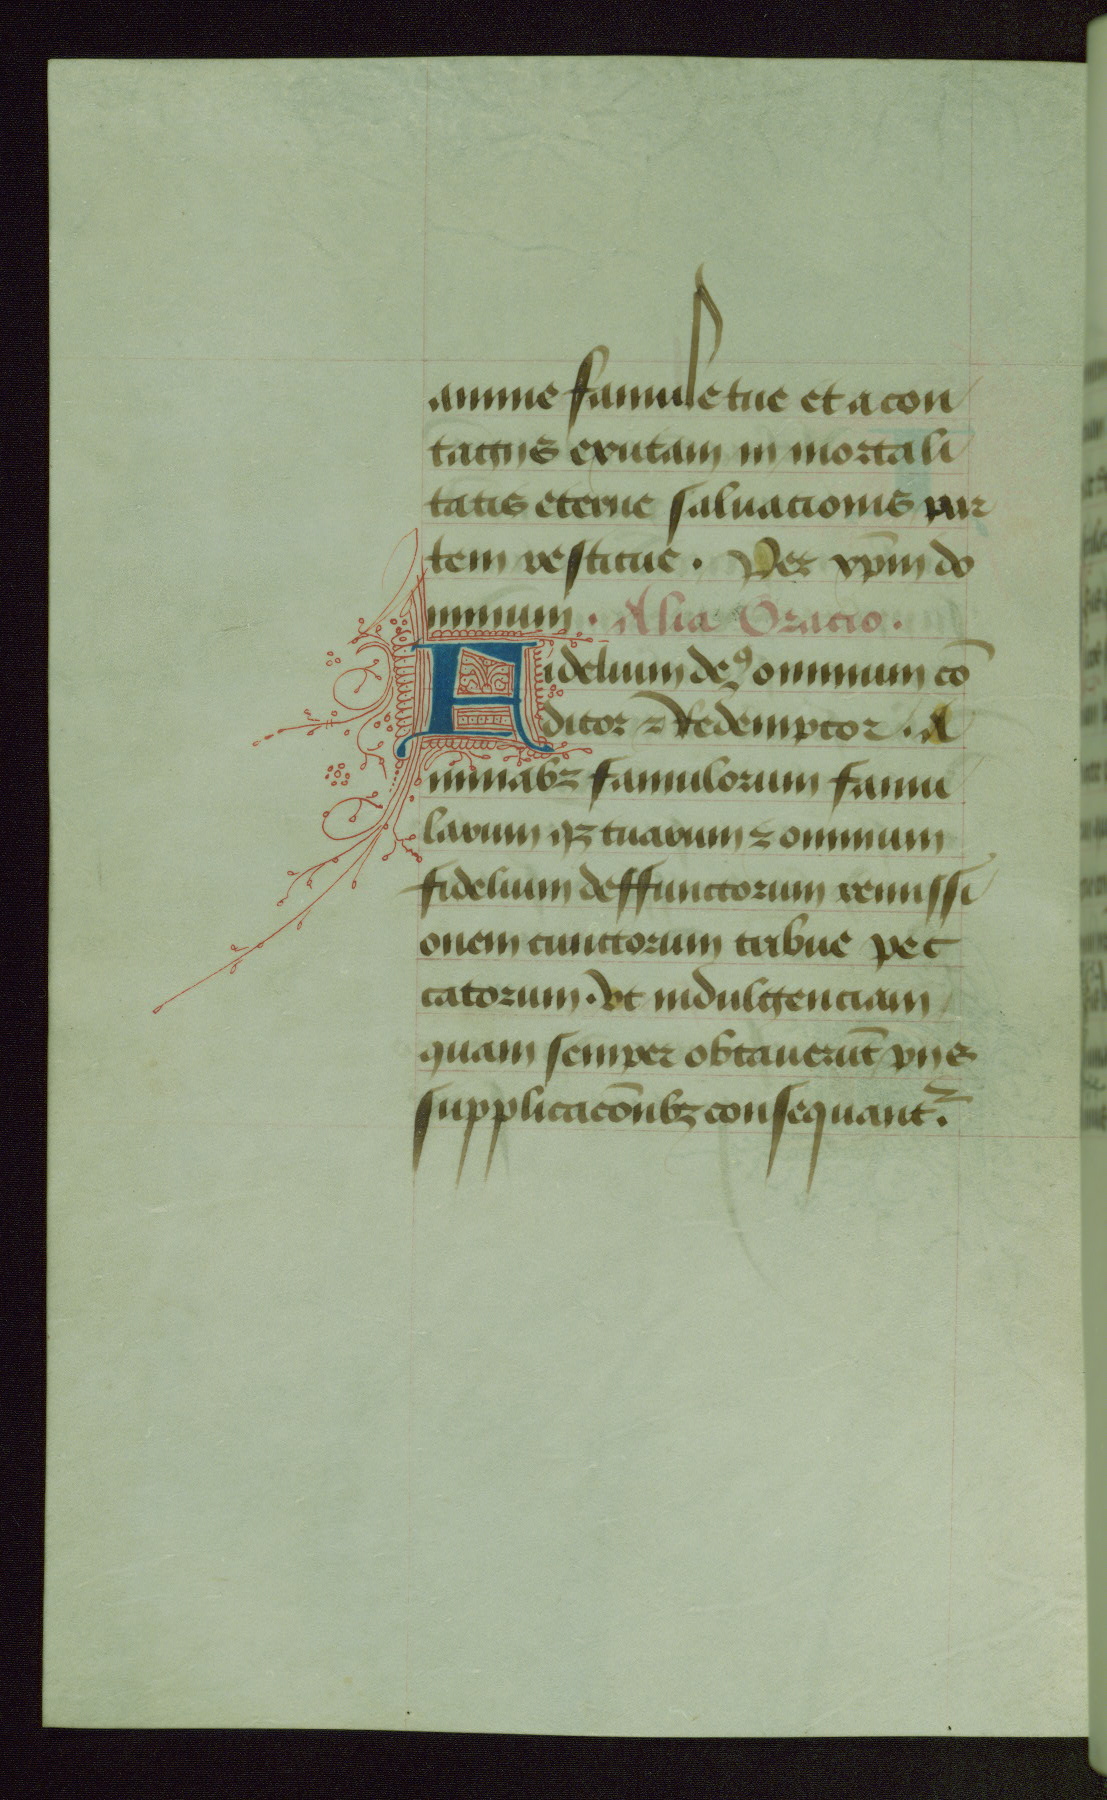 anime famule tue et a con
tagijs exutam in mortali
tatis eterne saluationis par
tem restitue. Per xp̄m do
minum. Alia Oracio.
Fidelium deꝰ omnium cō
ditor ⁊ Redemptor. A
nimabꝫ famulorum famu
larum qꝫ tuarum ⁊ omnium
fidelium deffunctorum remissi
onem cunctorum tribue pec
catorum. vt indulgenciam
quam semper obtauerūt pijs
supplicacōnibꝫ consequant᷑.